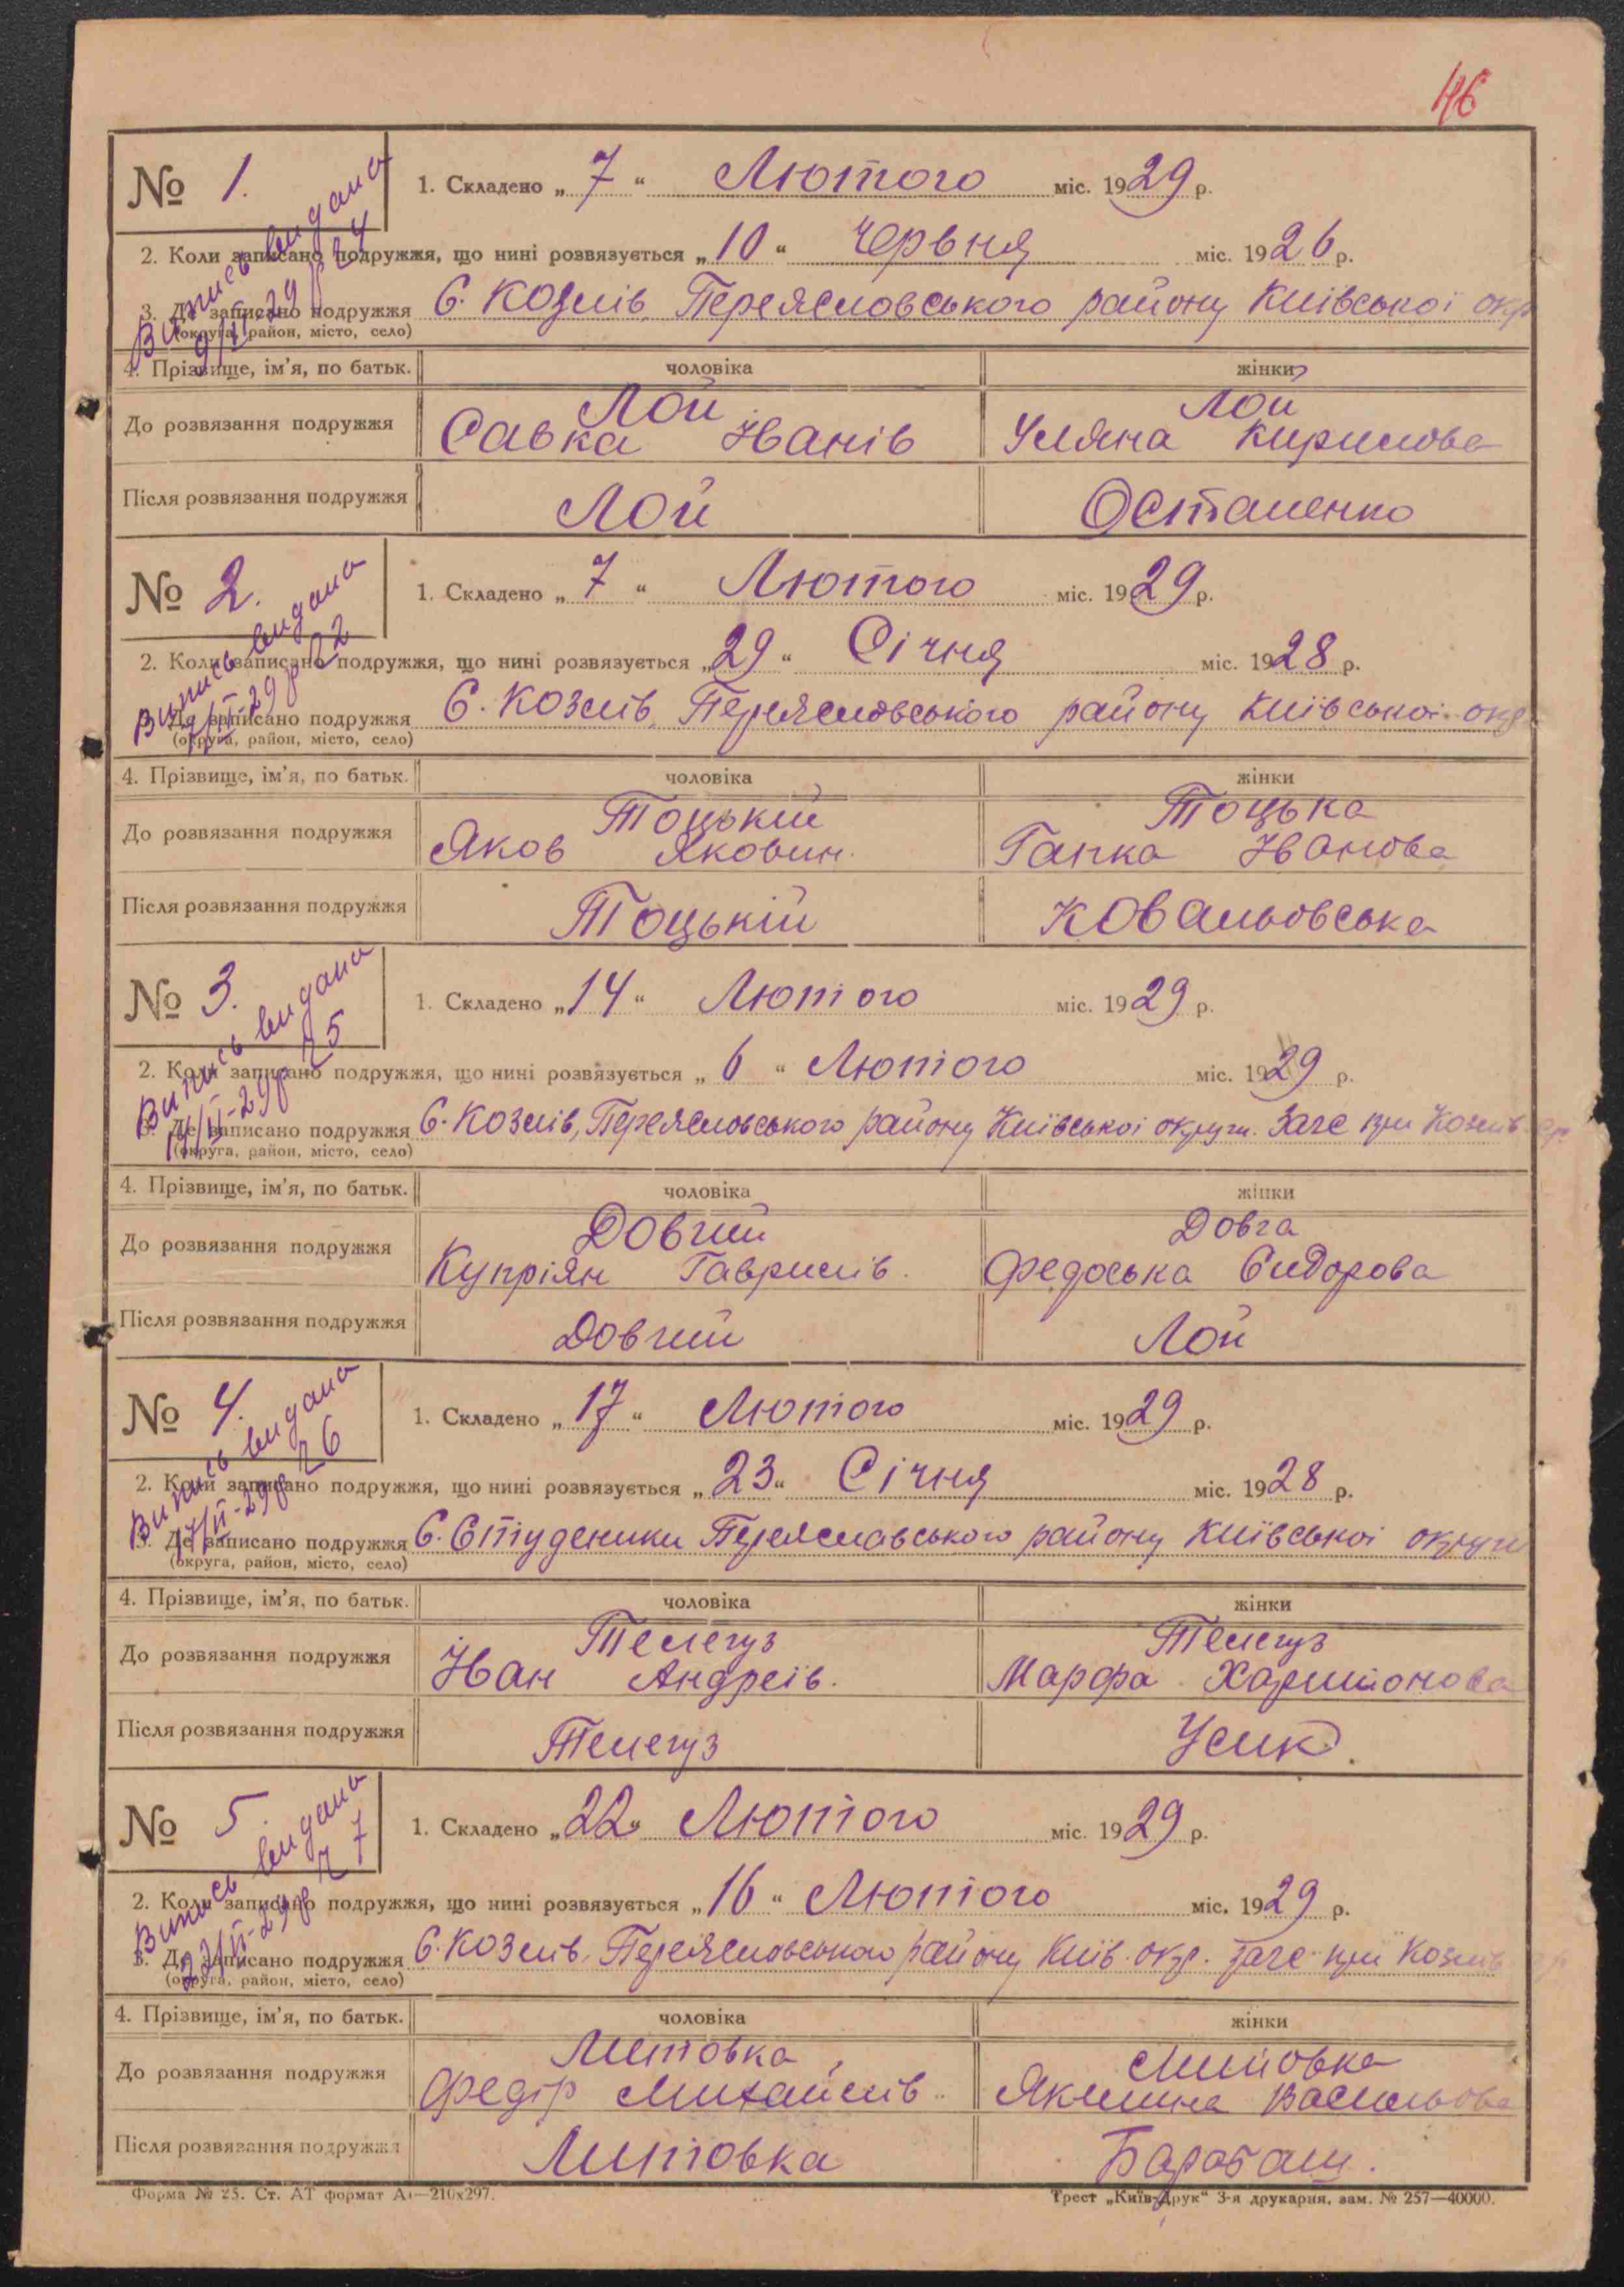 46
№ 1.
1. Складено „ 7 “ Лютого міс. 1929 р.
Випись видана
9/II-29 р 24
2. Коли записано подружжя, що нині розвязується „ 10 “ Червня міс. 1926 р.
3. Де записано подружжя С. Козлів, Переясловського району Київської окр
(округа, район, місто, село)
4. Прізвище, ім'я, по батьк. чоловіка жінки
Лой Лой
До розвязання подружжя Савка Іванів Уляна Кирилова
Після розвязання подружжя Лой Остапенко
№ 2.
1. Складено „ 7 “ Лютого міс. 1929 р.
Випись видана
7/II-29 р 22
2. Коли записано подружжя, що нині розвязується „ 29 “ Січня міс. 1928 р.
3. Де записано подружжя С. Козлів, Переясловського району Київської окр
(округа, район, місто, село)
4. Прізвище, ім'я, по батьк. чоловіка жінки
Тоцький Тоцька
До розвязання подружжя Яков Яковин Гапка Іванова
Після розвязання подружжя Тоцькій Ковальовська
№ 3.
1. Складено „ 14 “ Лютого міс. 1929 р.
Випись видана
14/II-29 р 25
2. Коли записано подружжя, що нині розвязується „ 6 “ Лютого міс. 1929 р.
3. Де записано подружжя С. Козлів, Переясловського району Київської округи. Загс при Козлів
(округа, район, місто, село)
4. Прізвище, ім'я, по батьк. чоловіка жінки
Довгий Довга
До розвязання подружжя Купріян Гаврилів. Федоська Сидорова
Після розвязання подружжя Довгий Лой
№ 4.
1. Складено „ 17 “ Лютого міс. 1929 р.
Випись видана
17/II-29 р 26
2. Коли записано подружжя, що нині розвязується „ 23 “ Січня міс. 1928 р.
3. Де записано подружжя С. Студеники Переяславського району Київської округи
(округа, район, місто, село)
4. Прізвище, ім'я, по батьк. чоловіка жінки
Телегуз Телегуз
До розвязання подружжя Іван Андреів. Марфа Харитонова
Після розвязання подружжя Телегуз Усик.
№ 5.
1. Складено „ 22 “ Лютого міс. 1929 р.
Випись видана
22/II-29 р 27
2. Коли записано подружжя, що нині розвязується „ 16 “ Лютого міс. 1929 р.
3. Де записано подружжя С. Козлів. Переясловського району Київ. окр. загс при Козлів
(округа, район, місто, село)
4. Прізвище, ім'я, по батьк. чоловіка жінки
Литовка Литовка
До розвязання подружжя Федір Михайлів. Якилина Васильова
Після розвязання подружжя Литовка Барабаш.
Форма № 25. Ст. АТ формат А4—210х297.
Трест „Київ-Друк“ 3-я друкарня, зам. № 257—40000.